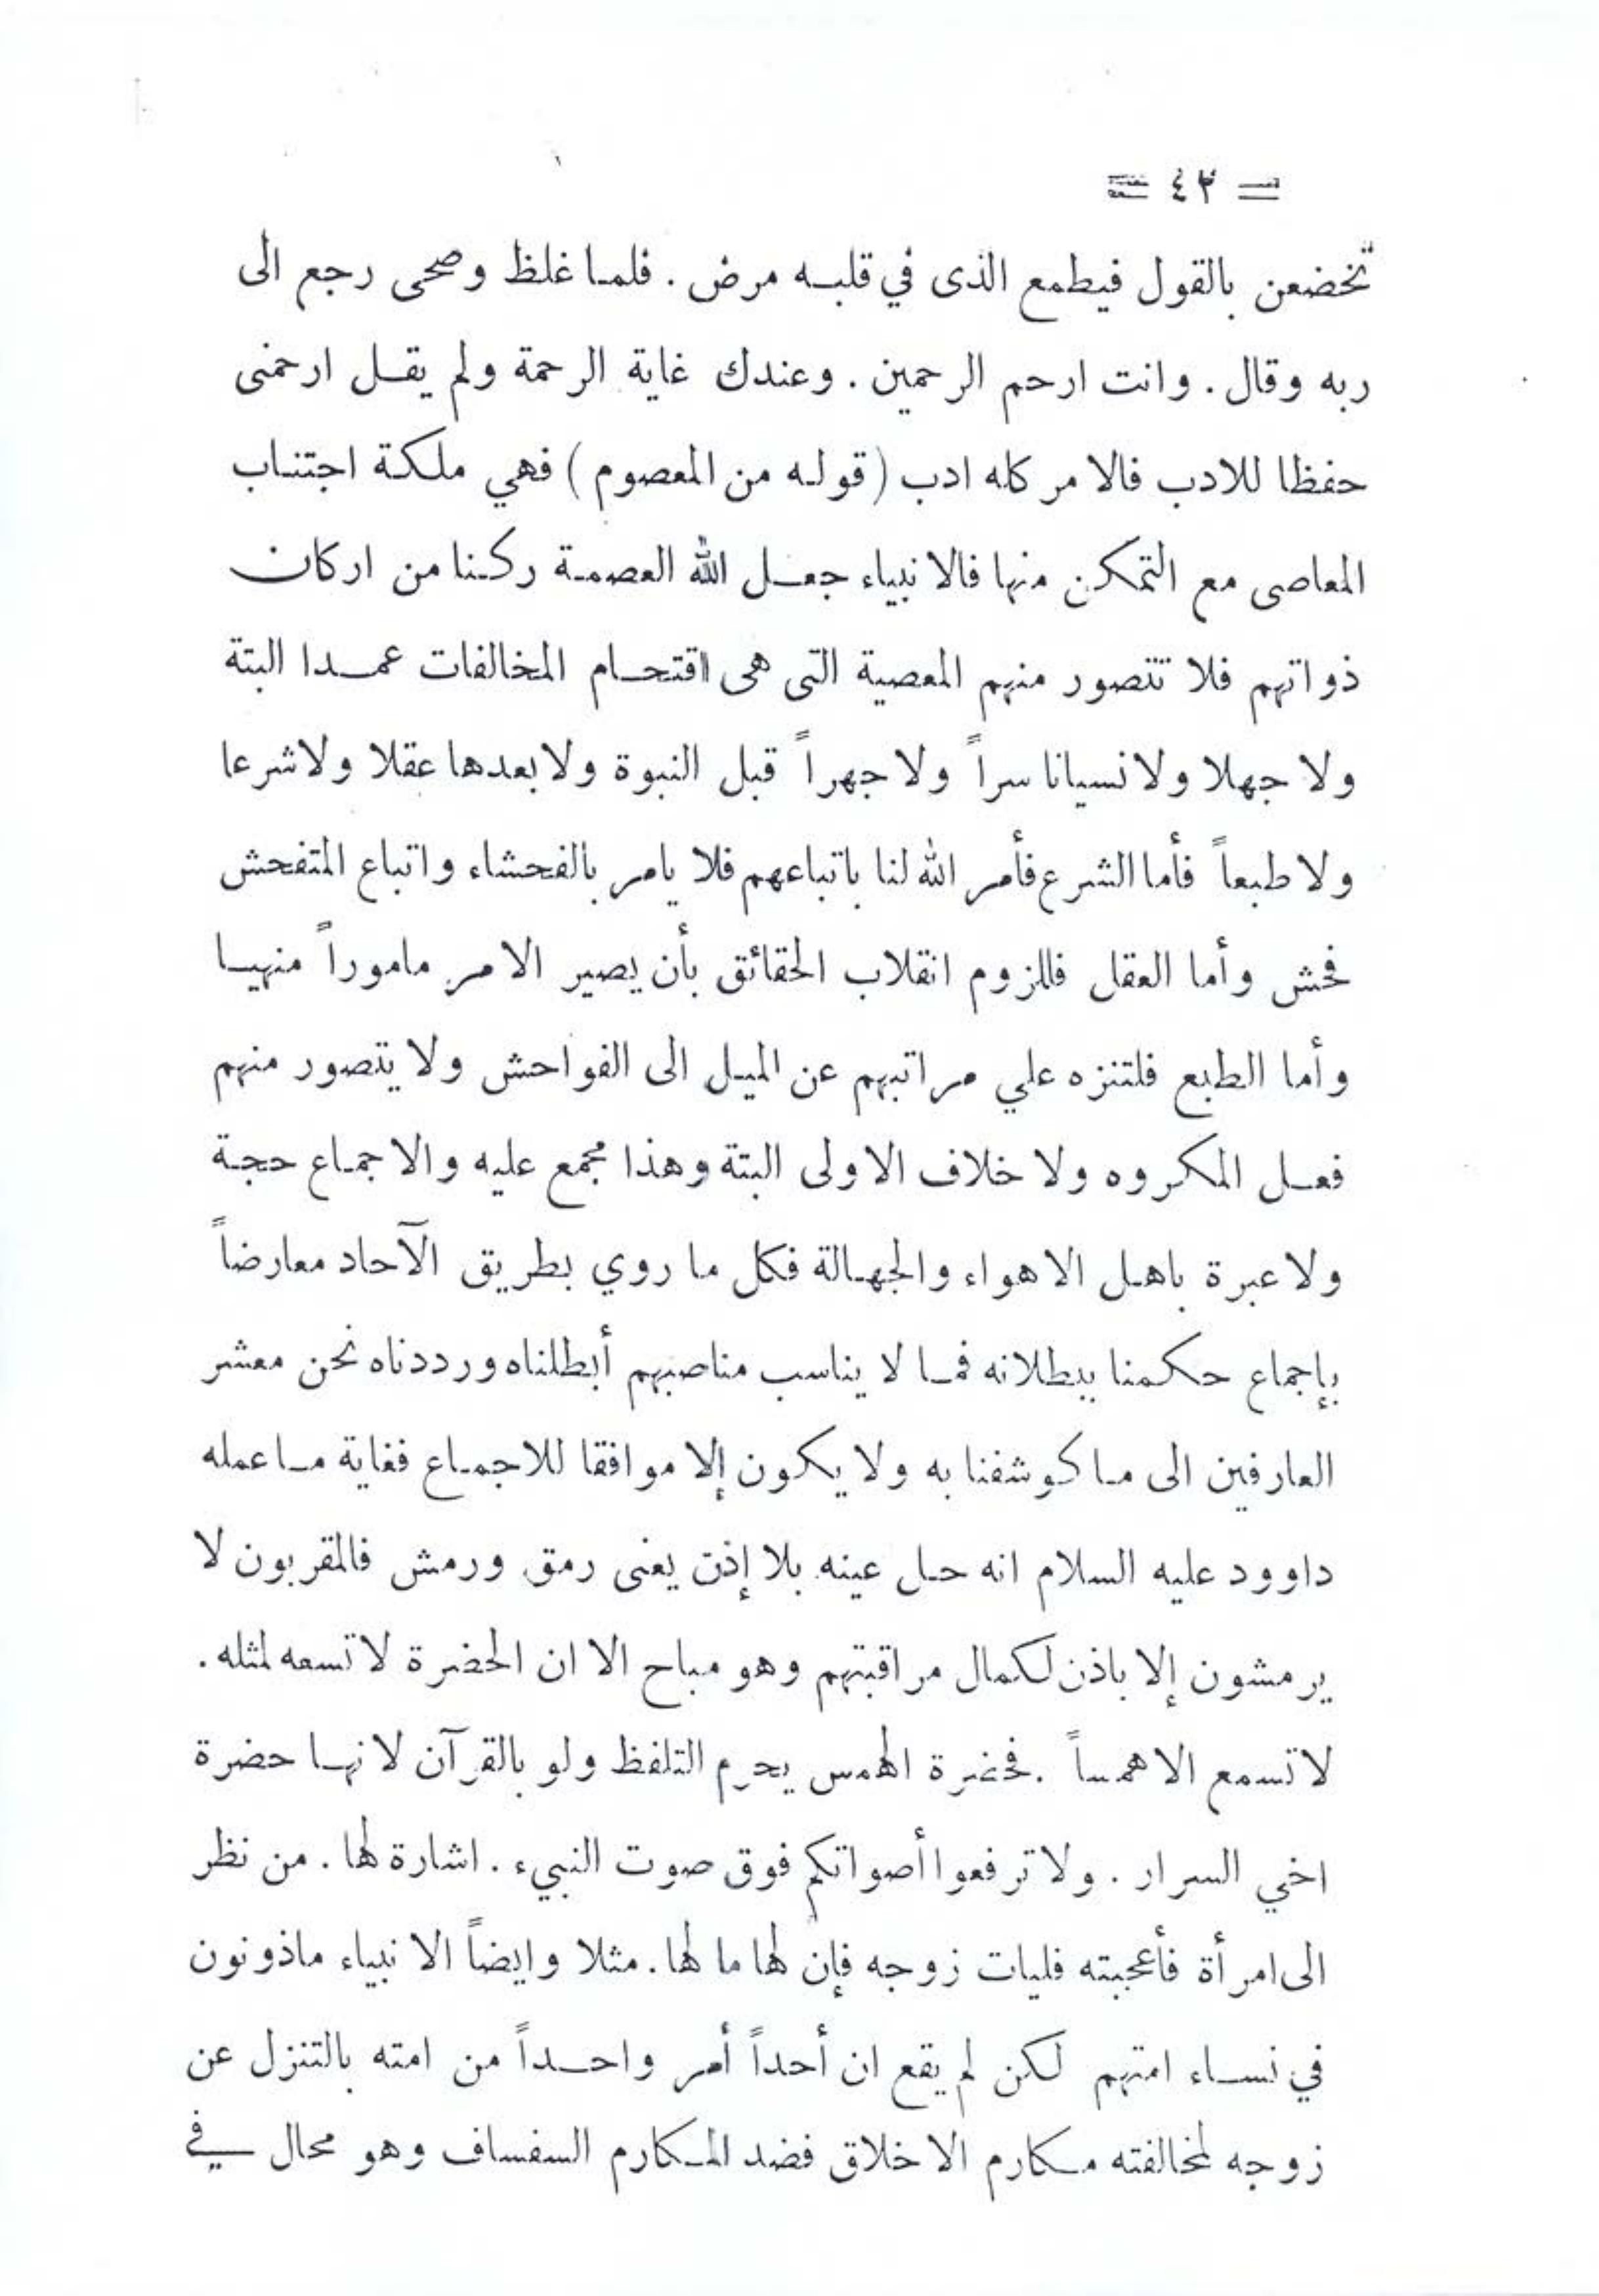 = ٤٢ =
تخضعن بالقول فيطمع الذى في قلبه مرض . فلما غلظ وصحى رجع الى
ربه وقال . وانت ارحم الرحمين . وعندك غاية الرحمة ولم يقل ارحمنى
حفظا للادب فالامر كله ادب ( قوله من المعصوم ) فهي ملكة اجتناب
المعاصى مع التمكن منها فالانبياء جعل الله العصمة ركنا من اركان
ذواتهم فلا تتصور منهم المعصية التى هى اقتحام المخالفات عمدا البتة
ولا جهلا ولا نسيانا سراً ولا جهراً قبل النبوة ولا بعدها عقلا ولا شرعا
ولا طبعاً فأما الشرع فأمر الله لنا باتباعهم فلا يامر بالفحشاء واتباع المتفحش
فحش وأما العقل فللزوم انقلاب الحقائق بأن يصير الامر ماموراً منهيا
وأما الطبع فلتنزه علي مراتبهم عن الميل الى الفواحش ولا يتصور منهم
فعل المكروه ولا خلاف الاولى البتة وهذا مجمع عليه والاجماع حجة
ولا عبرة باهل الاهواء والجهالة فكل ما روي بطريق الآحاد معارضاً
بإجماع حكمنا ببطلانه فما لا يناسب مناصبهم أبطلناه ورددناه نحن معشر
العارفين الى ما كوشفنا به ولا يكون إلا موافقا للاجماع فغاية ما عمله
داوود عليه السلام انه حل عينه بلا إذن يعنى رمق ورمش فالمقربون لا
يرمشون إلا باذن لكمال مراقبتهم وهو مباح الا ان الحضرة لا تسعه لمثله .
لا تسمع الا همساً . فحضرة الهمس يحرم التلفظ ولو بالقرآن لانها حضرة
اخي السرار . ولا ترفعوا أصواتكم فوق صوت النبيء . اشارة لها . من نظر
الى امرأة فأعجبته فليات زوجه فإن لها ما لها . مثلا وايضاً الانبياء ماذونون
في نساء امتهم لكن لم يقع ان أحداً أمر واحداً من امته بالتنزل عن
زوجه لمخالفته مكارم الاخلاق فضد المكارم السفساف وهو محال في